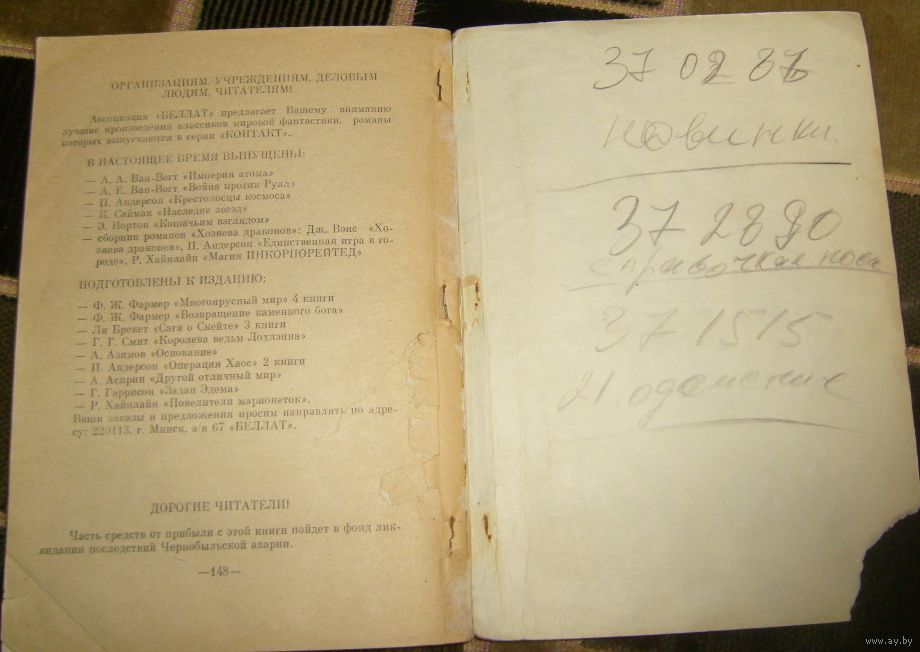 ОРГАНИЗАЦИЯМ, УЧРЕЖДЕНИЯМ, ДЕЛОВЫМ
ЛЮДЯМ, ЧИТАТЕЛЯМ!
Ассоциация «БЕЛЛАТ» предлагает Вашему вниманию
лучшие произведения классиков мировой фантастики, романы
которых выпускаются в серии «КОНТАКТ».
В НАСТОЯЩЕЕ ВРЕМЯ ВЫПУЩЕНЫ:
— А. А. Ван-Вогт «Империя атома»
— А. Е. Ван-Вогт «Война против Рулл»
— П. Андерсон «Крестоносцы космоса»
— К. Саймак «Наследие звезд»
— Э. Нортон «Кошачьим взглядом»
— сборник романов «Хозяева драконов»: Дж. Вэнс «Хо-
зяева драконов», П. Андерсон «Единственная игра в го-
роде», Р. Хайнлайн «Магия ИНКОРПОРЕЙТЕД»
ПОДГОТОВЛЕНЫ К ИЗДАНИЮ:
— Ф. Ж. Фармер «Многоярусный мир» 4 книги
— Ф. Ж. Фармер «Возвращение каменного бога»
— Ли Брекет «Сага о Скейте» 3 книги
— Г. Г. Смит «Королева ведьм Лохлэнна»
— А. Азимов «Основание»
— П. Андерсон «Операция Хаос» 2 книги
— А. Асприн «Другой отличный мир»
— Г. Гаррисон «Задан Эдема»
— Р. Хайнлайн «Повелители марионеток».
Ваши заказы и предложения просим направлять по адре-
су: 220113, г. Минск, а/я 67 «БЕЛЛАТ».
ДОРОГИЕ ЧИТАТЕЛИ!
Часть средств от прибыли с этой книги пойдет в фонд лик-
видации последствий Чернобыльской аварии.
—148—
37 02 87
новинки
37 28 90
справочная
37 15 15
21
www.ay.by